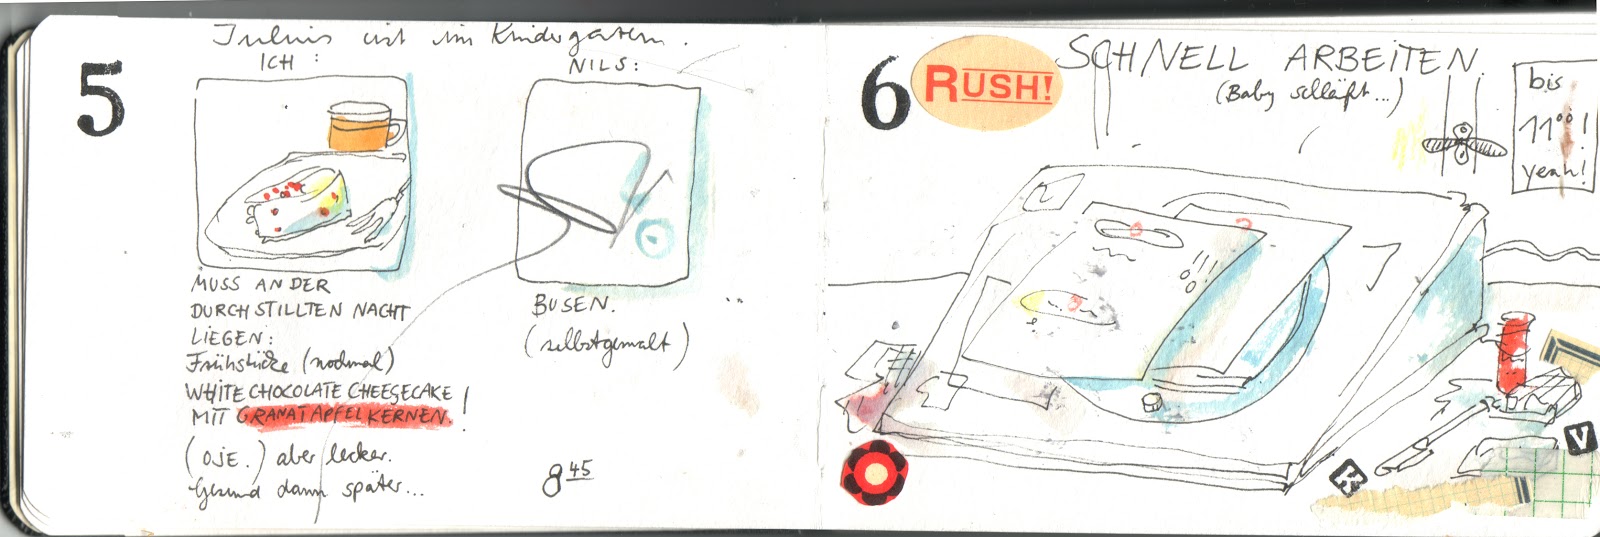 5
Julius ist im Kindergarten.
ICH:
MUSS AN DER
DURCHSTILLTEN NACHT
LIEGEN:
Frühstücke (nochmal)
WHITE CHOCOLATE CHEESECAKE
MIT GRANATAPFELKERNEN!
(OJE.) aber lecker.
Gesund dann später...
NILS:
BUSEN.
(selbstgemalt)
8 45
6
RUSH!
SCHNELL ARBEITEN
(Baby schläft...)
bis
11 00!
yeah!
!!!
K
V